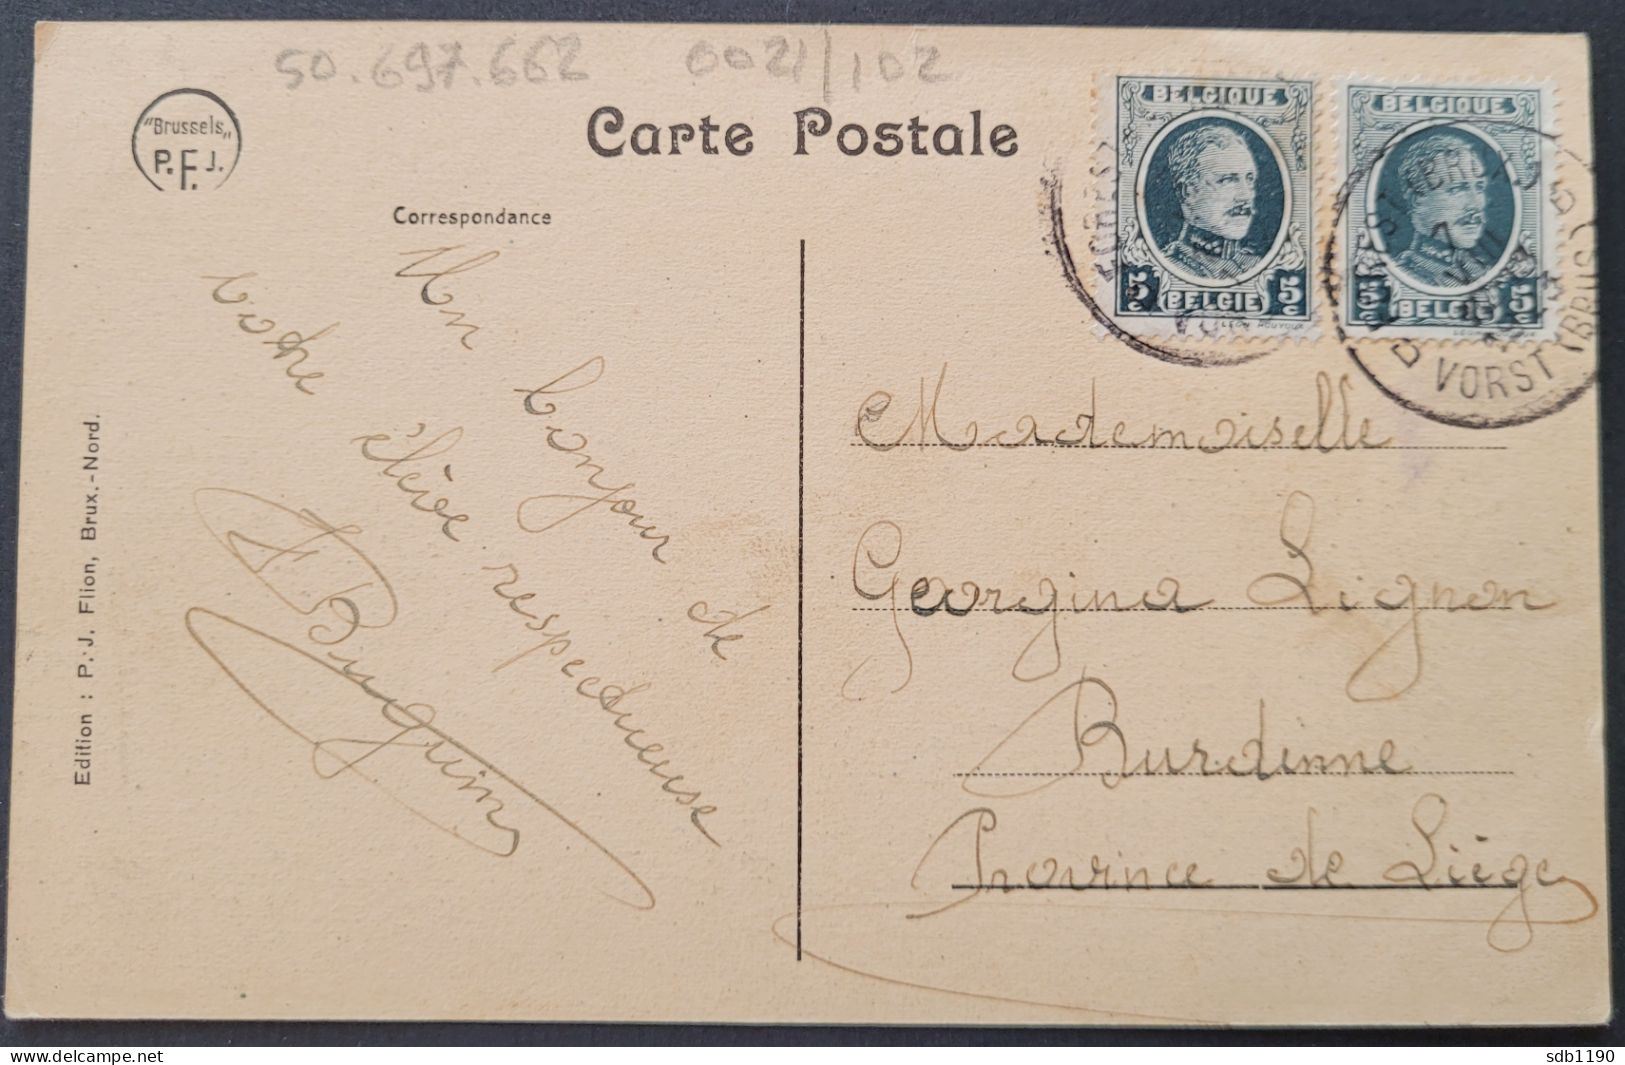 50.697.662 0021/102
"Brussels"
P.F.J.
Carte Postale
Correspondance
Un bonjour de
votre élève respectueuse
F Buguin
Edition : P.-J. Flion, Brux.-Nord.
BELGIQUE
5c BELGIE 5c
BELGIQUE
5c BELGIE 5c
VORST (BRUS
Mademoiselle
Georgina Lignon
Burdinne
Province de Liège
sdb1190